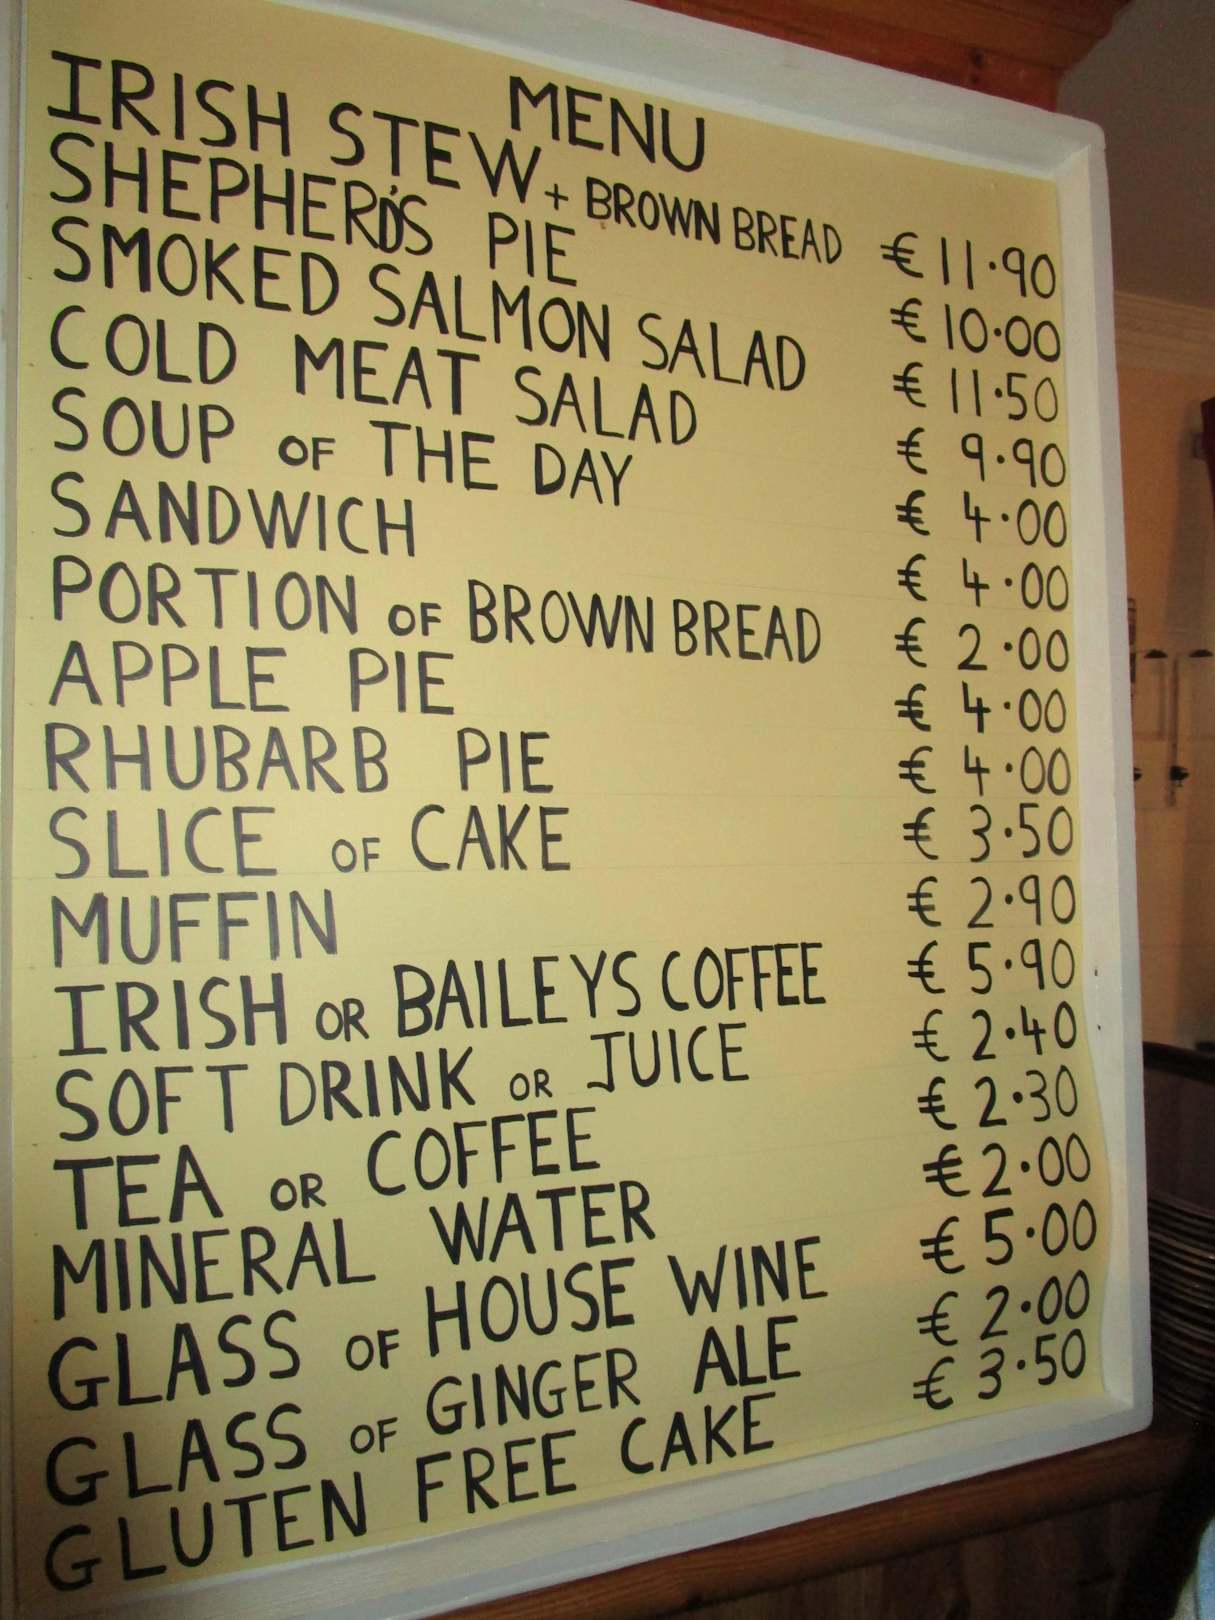 MENU
IRISH STEW + BROWN BREAD € 11.90
SHEPHERD'S PIE € 10.00
SMOKED SALMON SALAD € 11.50
COLD MEAT SALAD € 9.90
SOUP OF THE DAY € 4.00
SANDWICH € 4.00
PORTION OF BROWN BREAD € 2.00
APPLE PIE € 4.00
RHUBARB PIE € 4.00
SLICE OF CAKE € 3.50
MUFFIN € 2.90
IRISH OR BAILEYS COFFEE € 5.90
SOFT DRINK OR JUICE € 2.40
TEA OR COFFEE € 2.30
MINERAL WATER € 2.00
GLASS OF HOUSE WINE € 5.00
GLASS OF GINGER ALE € 2.00
GLUTEN FREE CAKE € 3.50